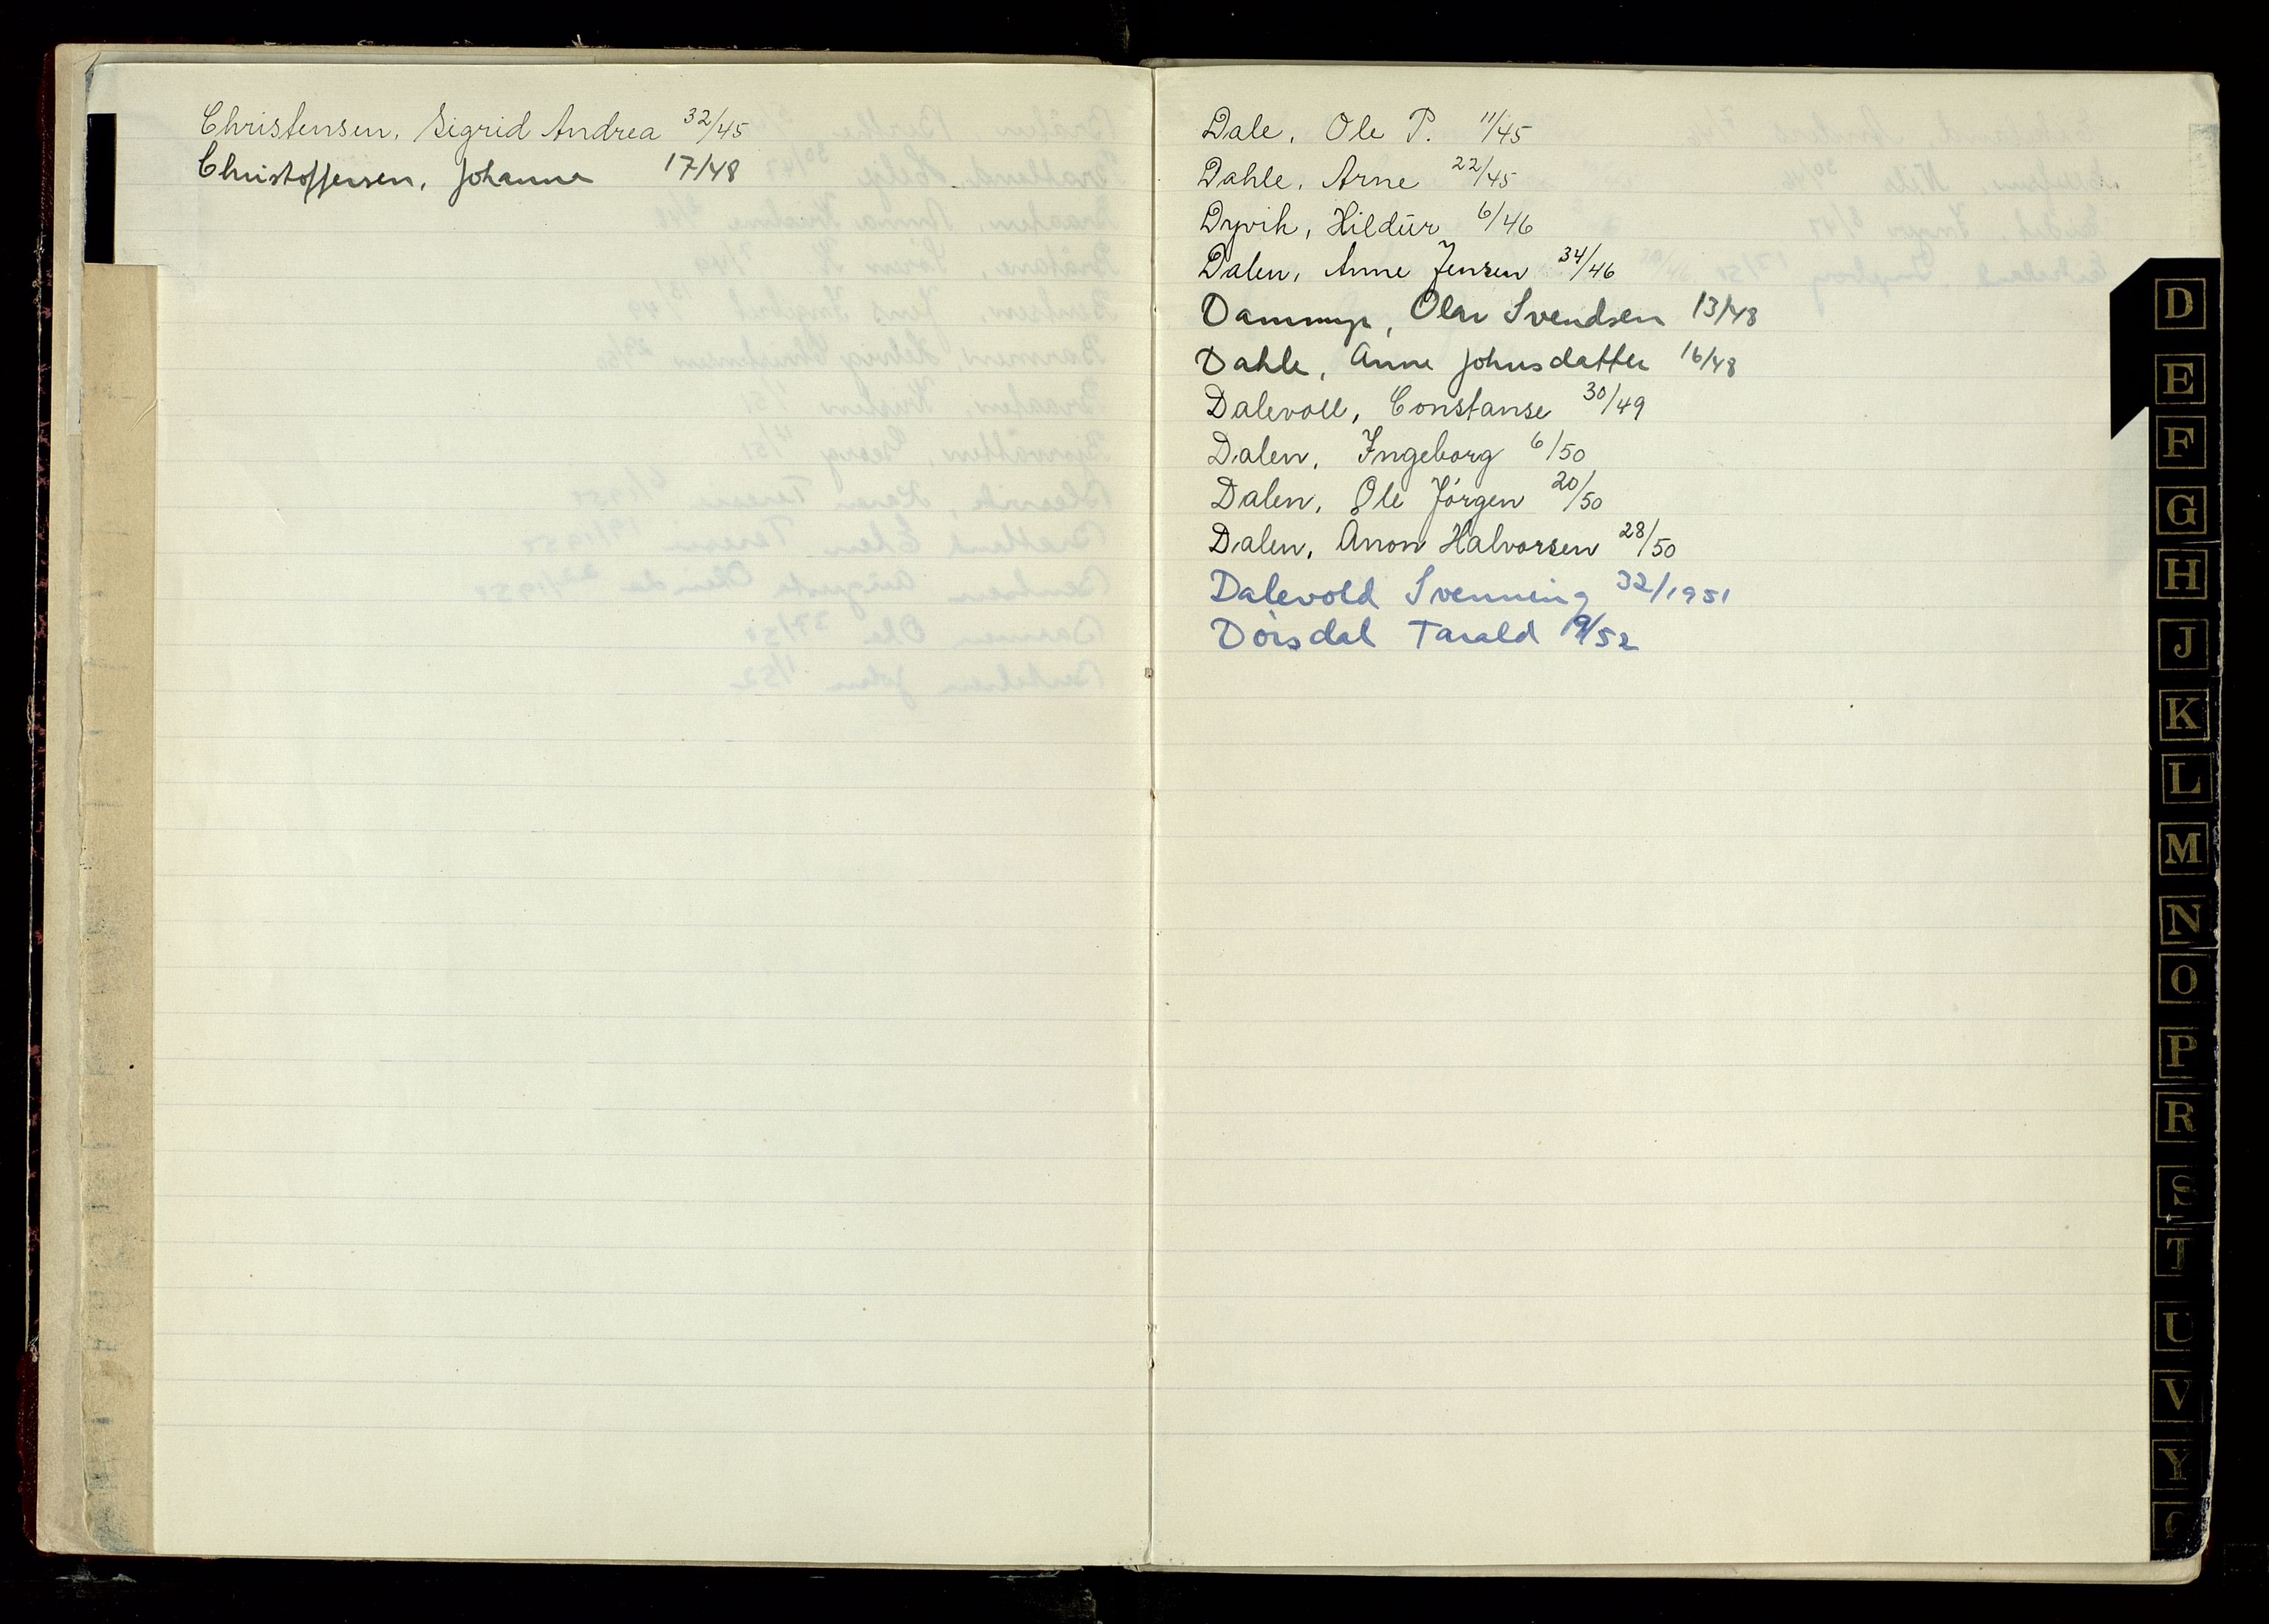 Christensen, Sigrid Andrea 32/45
Christoffersen, Johanne 17/48
Dale, Ole P. 11/45
Dahle, Arne 22/45
Dyvik, Hildur 6/46
Dalen, Anne Jensen 34/46
Olav Svendsen 13/48
Dahle, Anne Johnsdatter 16/48
Dalevoll, Constanse 30/49
Dalen, Ingeborg 6/50
Dalen, Ole Jörgen 20/50
Dalen, Anon Halvorsen 28/50
Dalevold Svenning 32/1951
Tarald 19/52
D
E
F
G
H
J
K
L
M
N
O
P
R
S
T
U
V
Y